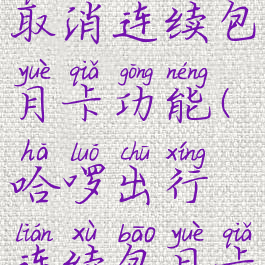 取消连续包
yuè qiǎ gōng néng
月卡功能(
hā luō chū xíng
哈啰出行
lián xù bāo yuè qiǎ
连续包月卡